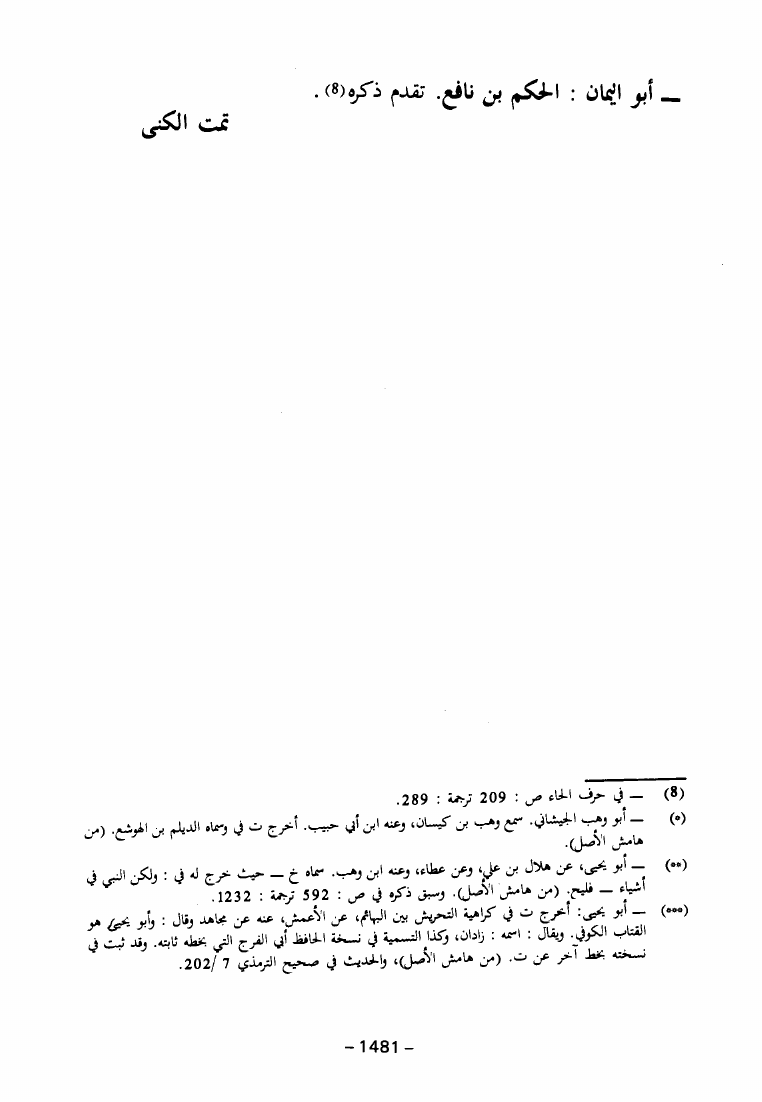 — أبو اليمان : الحكم بن نافع. تقدم ذكره(8) .
تمت الكنى
(8) — في حرف الحاء ص : 209 ترجمة : 289.
(٥) — أبو وهب الجيشاني. سمع وهب بن كيسان، وعنه ابن أبي حبيب. أخرج ت في وسماه الديلم بن الهوشع. (من
هامش الأصل).
(٥٥) — أبو يحيى، عن هلال بن علي، وعن عطاء، وعنه ابن وهب. سماه خ — حيث خرج له في : ولكن النبي في
أشياء — فليح. (من هامش الأصل). وسبق ذكره في ص : 592 ترجمة : 1232.
(٥٥٥) — أبو يحيى: أخرج ت في كراهية التحريش بين البهائم، عن الأعمش، عنه عن مجاهد وقال : وأبو يحيى هو
القتاب الكوفي. ويقال : اسمه : زادان، وكذا التسمية في نسخة الحافظ أبي الفرج التي بخطه ثابته. وقد ثبت في
نسخته بخط آخر عن ت. (من هامش الأصل)، والحديث في صحيح الترمذي 7 /202.
– 1481 –